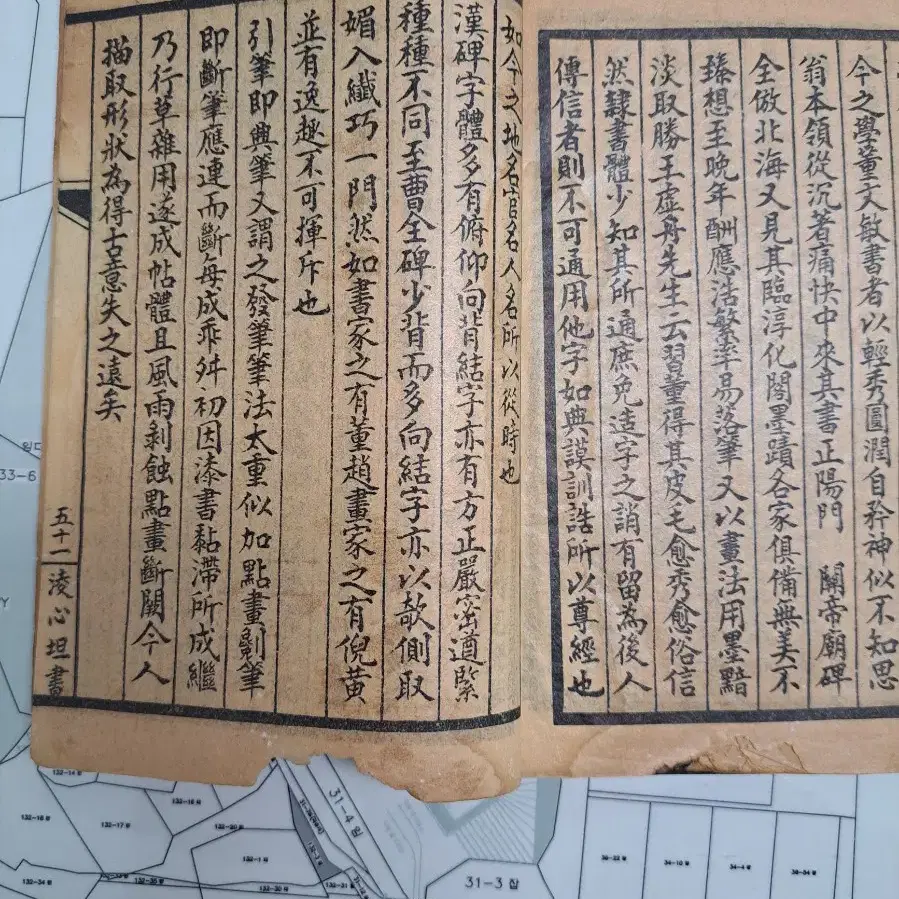 今之學董文敏書者以輕秀圓潤自矜神似不知思
翁本領從沉著痛快中來其書正陽門 關帝廟碑
全倣北海又見其臨淳化閣墨蹟各家俱備無美不
臻想至晚年酬應浩繁率易落筆又以畫法用墨黯
淡取勝王虛舟先生云習董得其皮毛愈秀愈俗信
然隸書體少知其所通庶免造字之誚有留為後人
傳信者則不可通用他字如典謨訓誥所以尊經也
如今之地名官名人名所以從時也
漢碑字體多有俯仰向背結字亦有方正嚴密遒緊
種種不同至曹全碑少背而多向結字亦以欹側取
媚入纖巧一門然如書家之有董趙畫家之有倪黃
並有逸趣不可揮斥也
引筆即典筆又謂之發筆筆法太重似加點畫筆
即斷筆應連而斷每成乖舛初因漆書黏滯所成繼
乃行草雜用遂成帖體且風雨剝蝕點畫斷闕今人
描取形狀為得古意失之遠矣
五十一 淩心坦書
33-6
31-4 임
31-3 잡